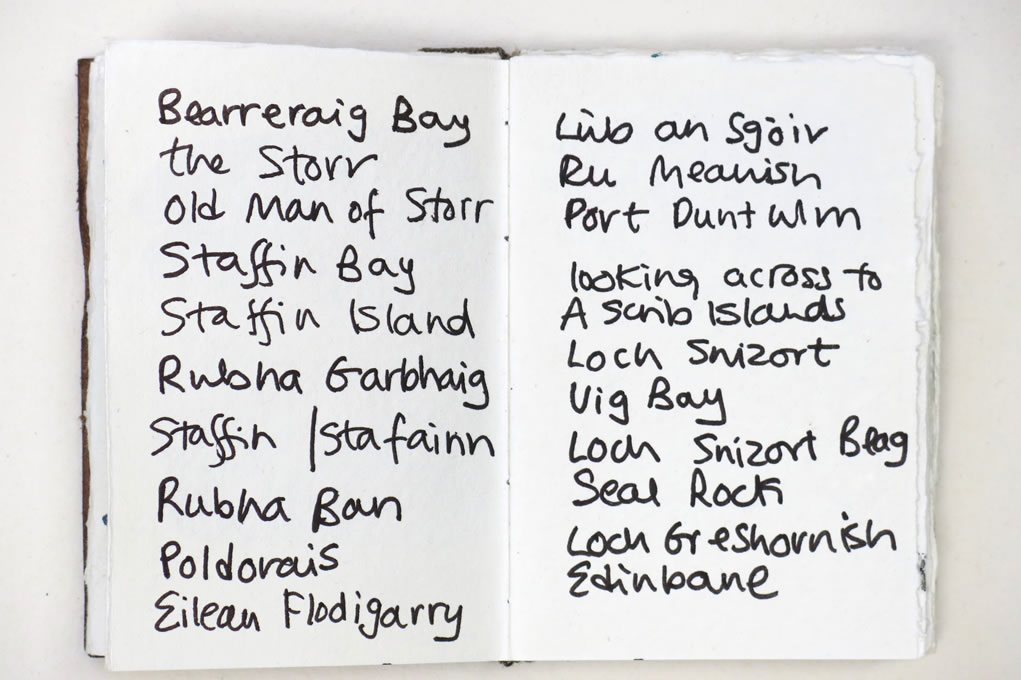 Bearreraig Bay
the Storr
Old Man of Storr
Staffin Bay
Staffin Island
Rubha Garbhaig
Staffin / Stafainn
Rubha Ban
Poldorais
Eilean Flodigarry
Lùb an Sgòir
Ru Meanish
Port Duntulm
looking across to
Ascrib Islands
Loch Snizort
Uig Bay
Loch Snizort Beag
Seal Rock
Loch Greshornish
Edinbane